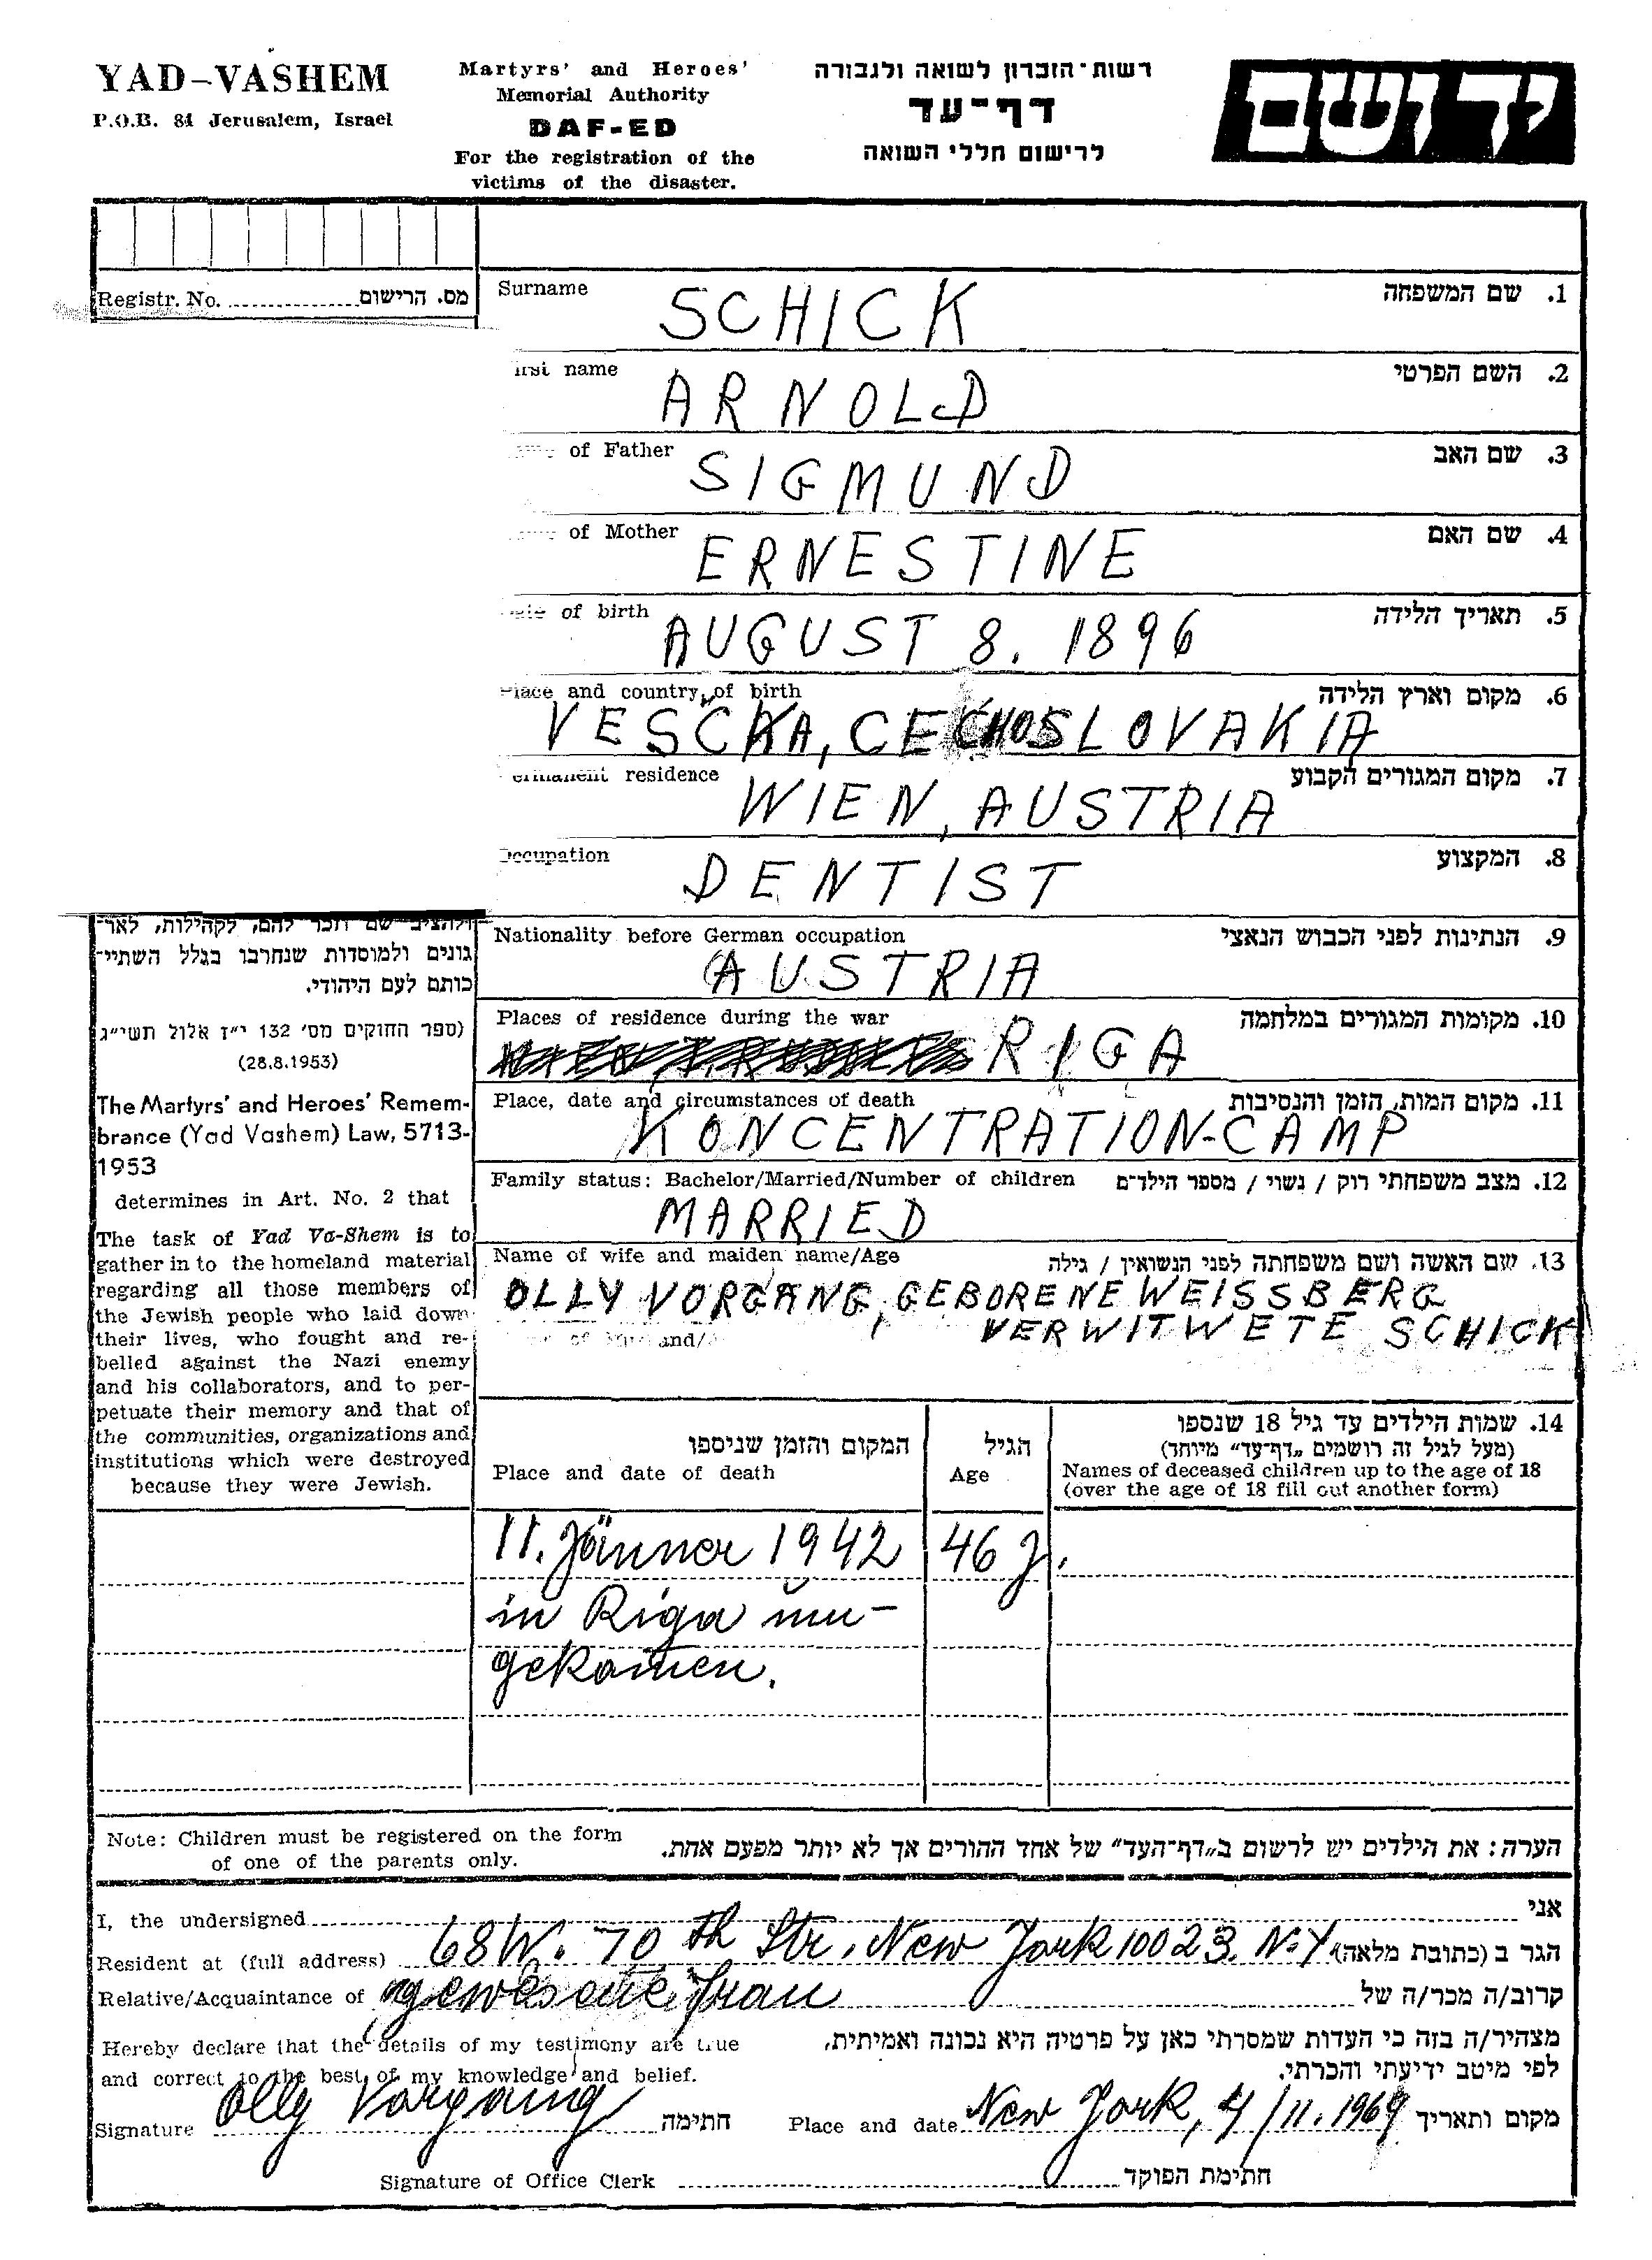 YAD-VASHEM
P.O.B. 84 Jerusalem, Israel
Martyrs' and Heroes'
Memorial Authority
DAF-ED
For the registration of the
victims of the disaster.
רשות-הזכרון לשואה ולגבורה
דף-עד
לרישום חללי השואה
יד ושם
Registr. No. מס. הרישום
Surname SCHICK 1. שם המשפחה
irst name ARNOLD 2. השם הפרטי
of Father SIGMUND 3. שם האב
of Mother ERNESTINE 4. שם האם
of birth AUGUST 8. 1896 5. תאריך הלידה
Place and country of birth 6. מקום וארץ הלידה
VESCKA, CECHOSLOVAKIA
ermanent residence WIEN, AUSTRIA 7. מקום המגורים הקבוע
Occupation DENTIST 8. המקצוע
Nationality before German occupation 9. הנתינות לפני הכבוש הנאצי
AUSTRIA
Places of residence during the war 10. מקומות המגורים במלחמה
RIGA
Place, date and circumstances of death 11. מקום המות, הזמן והנסיבות
KONCENTRATION-CAMP
Family status: Bachelor/Married/Number of children 12. מצב משפחתי רוק / נשוי / מספר הילדים
MARRIED
Name of wife and maiden name/Age 13. שם האשה ושם משפחתה לפני הנשואין / גילה
OLLY VORGANG, GEBORENE WEISSBERG
VERWITWETE SCHICK
and/
ולהציב שם וזכר להם, לקהילות, לאר־
גונים ולמוסדות שנחרבו בגלל השתיי־
כותם לעם היהודי.
(ספר החוקים מס' 132 י"ז אלול תשי"ג
(28.8.1953)
The Martyrs' and Heroes' Remem-
brance (Yad Vashem) Law, 5713-
1953
determines in Art. No. 2 that
The task of Yad Va-Shem is to
gather in to the homeland material
regarding all those members of
the Jewish people who laid down
their lives, who fought and re-
belled against the Nazi enemy
and his collaborators, and to per-
petuate their memory and that of
the communities, organizations and
institutions which were destroyed
because they were Jewish.
המקום והזמן שניספו
Place and date of death
הגיל
Age
14. שמות הילדים עד גיל 18 שנספו
(מעל לגיל זה רושמים "דף-עד" מיוחד)
Names of deceased children up to the age of 18
(over the age of 18 fill out another form)
11. Jänner 1942 46 J.
in Riga um-
gekomen.
Note: Children must be registered on the form
of one of the parents only.
הערה: את הילדים יש לרשום ב"דף-העד" של אחד ההורים אך לא יותר מפעם אחת.
I, the undersigned אני
Resident at (full address) 68 W. 70th Str, New York 10023. N.Y הגר ב (כתובת מלאה)
Relative/Acquaintance of gewesene Frau קרוב/ה מכר/ה של
Hereby declare that the details of my testimony are true
and correct to the best of my knowledge and belief.
מצהיר/ה בזה כי העדות שמסרתי כאן על פרטיה היא נכונה ואמיתית,
לפי מיטב ידיעתי והכרתי.
Signature Olly Vorgang חתימה Place and date New York, 4/11. 1969 מקום ותאריך
Signature of Office Clerk חתימת הפוקד